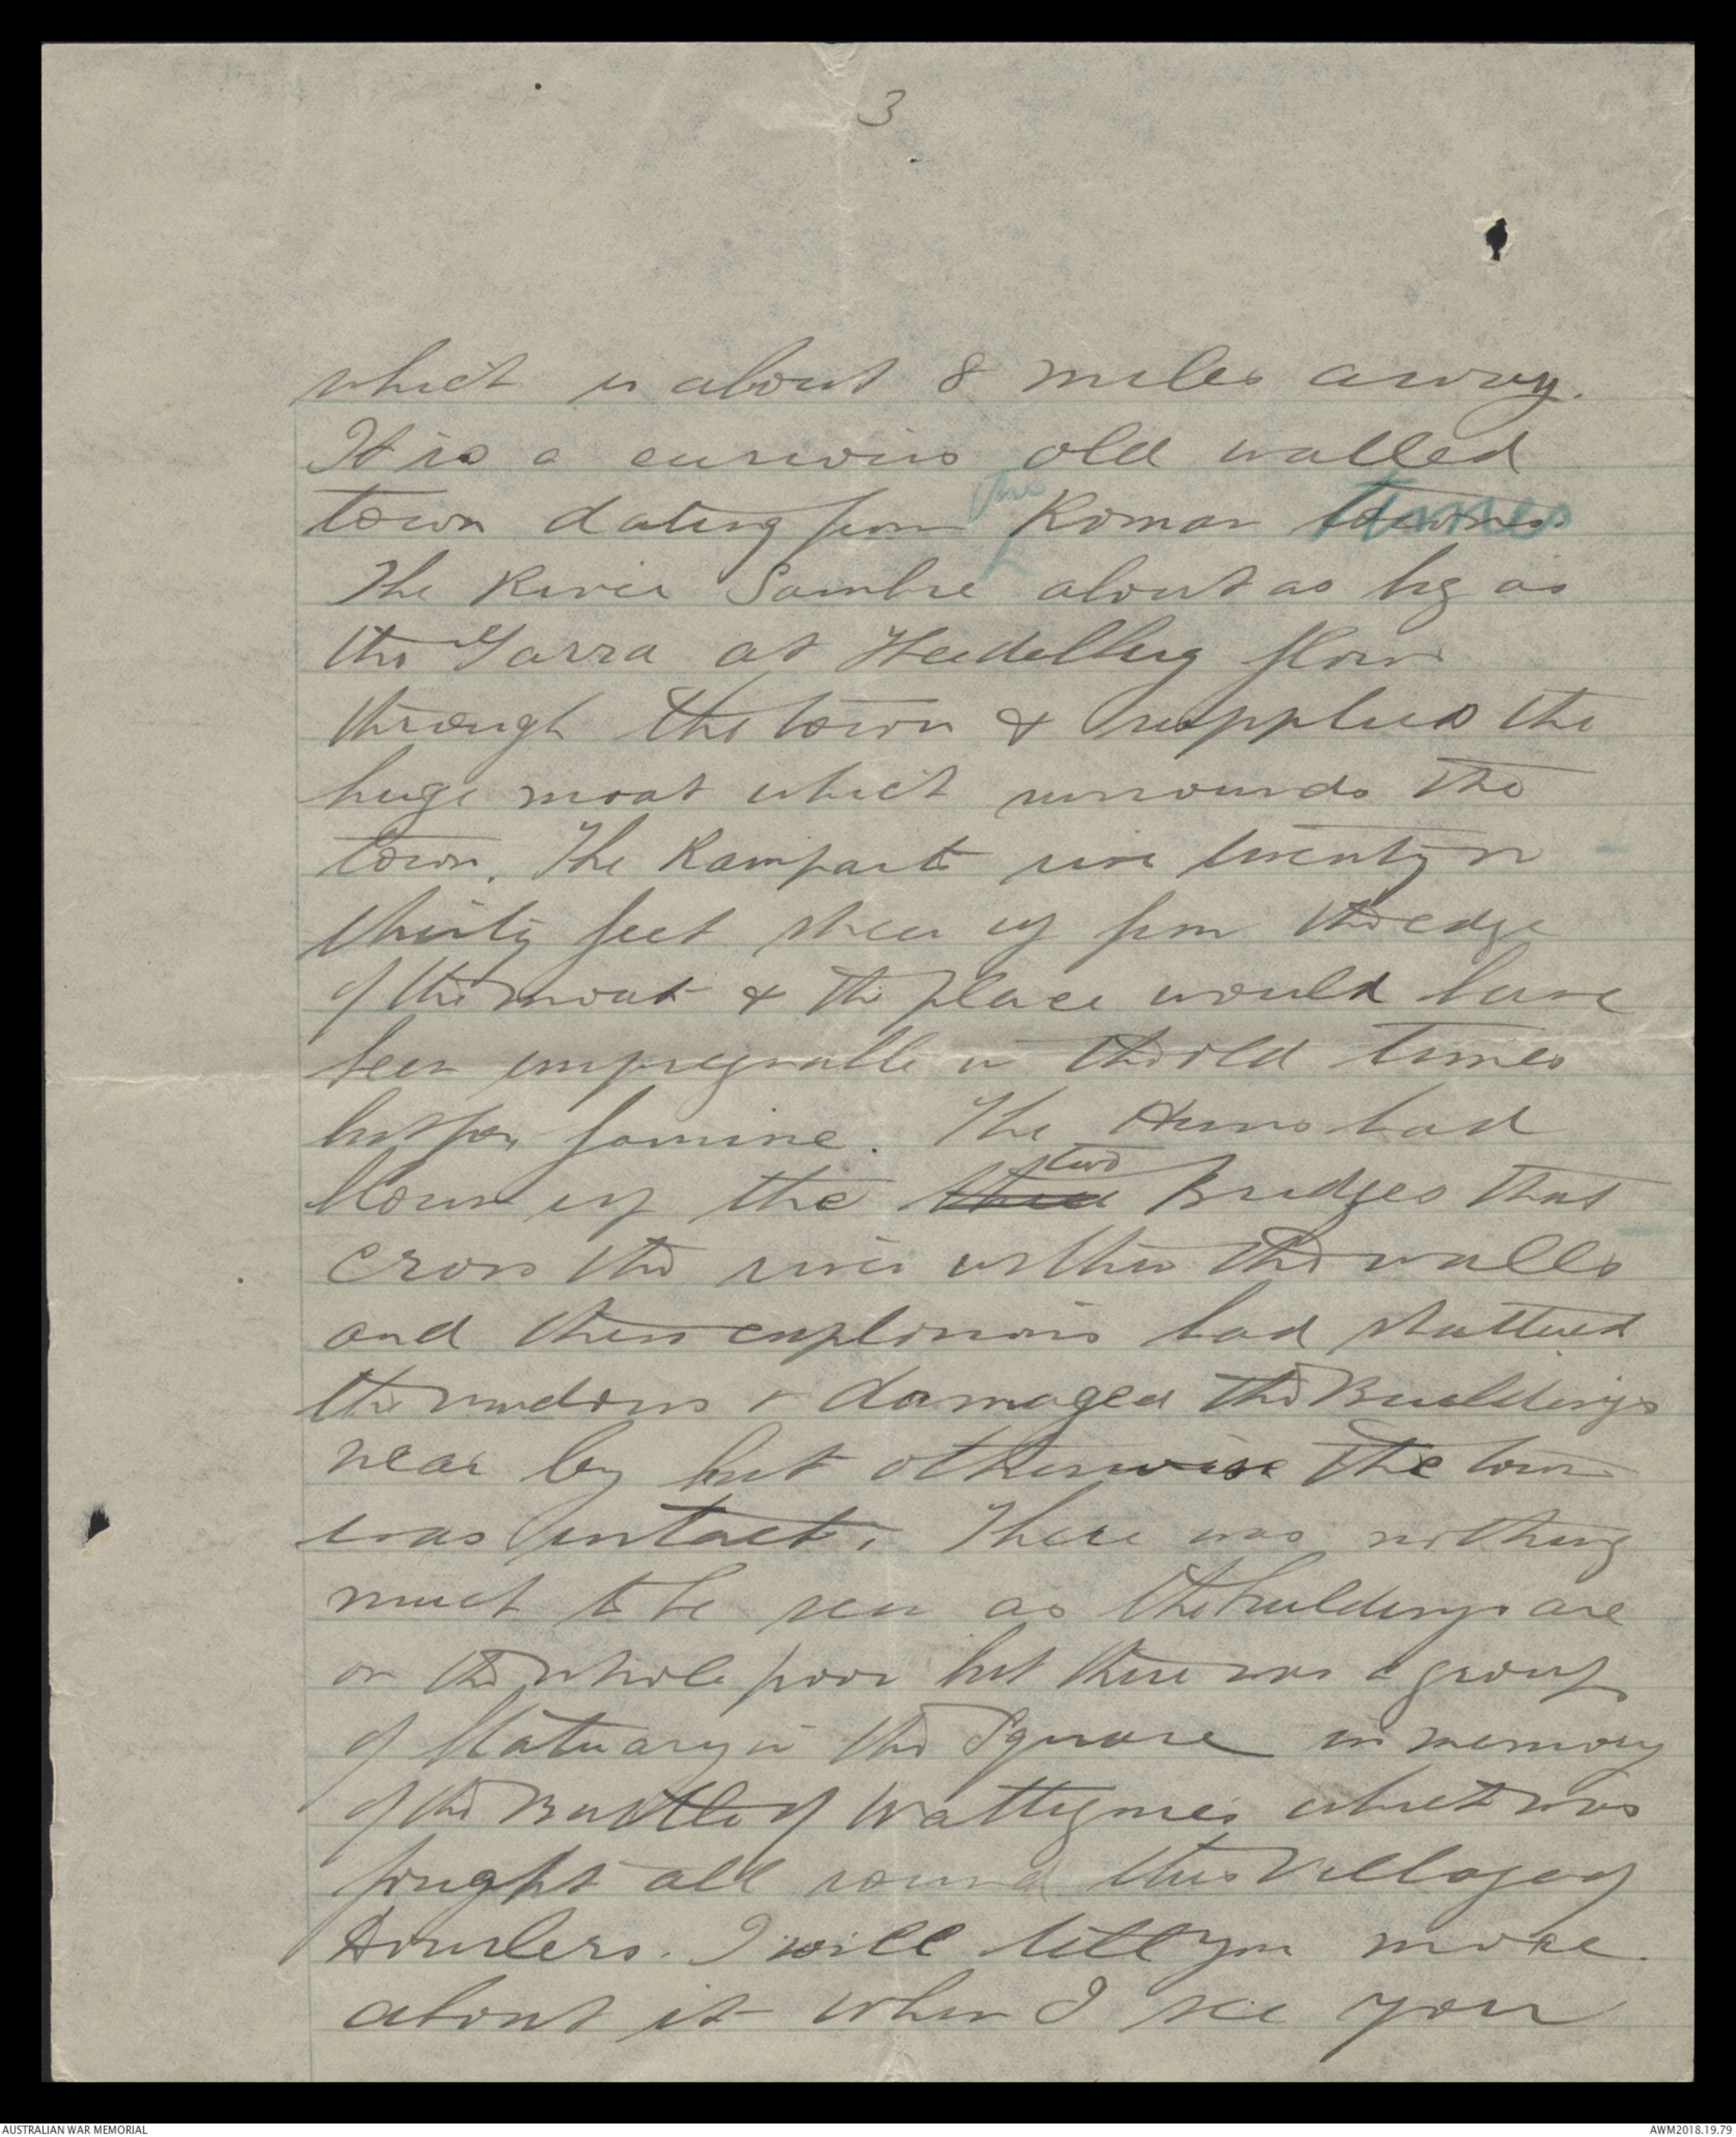 3
which is about 8 miles away.
It is a curious old walled
town dating from the Roman times
The River Sambre about as big as
the Yarra at Heidelberg flows
through the town & supplies the
huge moat which surrounds the
town. The Ramparts rise twenty or
thirty feet sheer up from the edge
of the moat & the place would have
been impregnable in the old times
but for famine. The Huns had
blown up the three two Bridges that
cross the river within the walls
and these explosions had shattered
the windows & damaged the Buildings
near by but otherwise the town
was intact. There was nothing
much to be seen as the buildings are
on the whole poor but there was a group
of Statuary in the Square in memory
of the Battle of Wattignies which was
fought all round this Village of
Dourlers. I will tell you more
about it when I see you
AUSTRALIAN WAR MEMORIAL
AWM2018.19.79